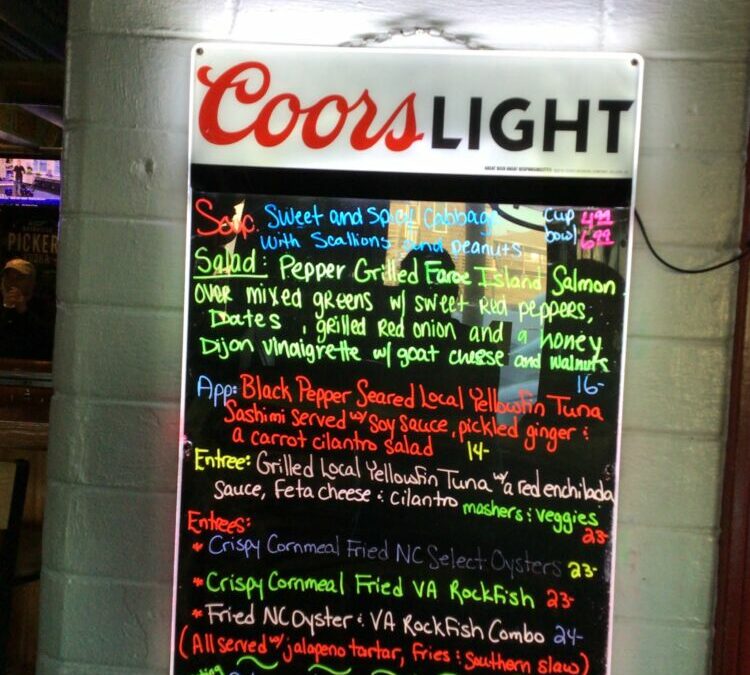 Coors LIGHT
PICKER
Soup: Sweet and Spicy Cabbage Cup 4.99
with Scallions and peanuts bowl 6.99
Salad: Pepper Grilled Faroe Island Salmon
over mixed greens w/ sweet red peppers,
Dates, grilled Red onion and a honey
Dijon vinaigrette w/ goat cheese and walnuts
16-
App: Black Pepper Seared Local Yellowfin Tuna
Sashimi served w/ soy sauce, pickled ginger &
a carrot cilantro salad 14-
Entree: Grilled Local Yellowfin Tuna w/ a red enchilada
sauce, Feta cheese & cilantro mashers & veggies
23-
Entrees:
* Crispy Cornmeal Fried NC Select Oysters 23-
* Crispy Cornmeal Fried VA Rockfish 23-
* Fried NC Oyster & VA Rockfish Combo 24-
(All served w/ jalapeno tartar, Fries & Southern slaw)